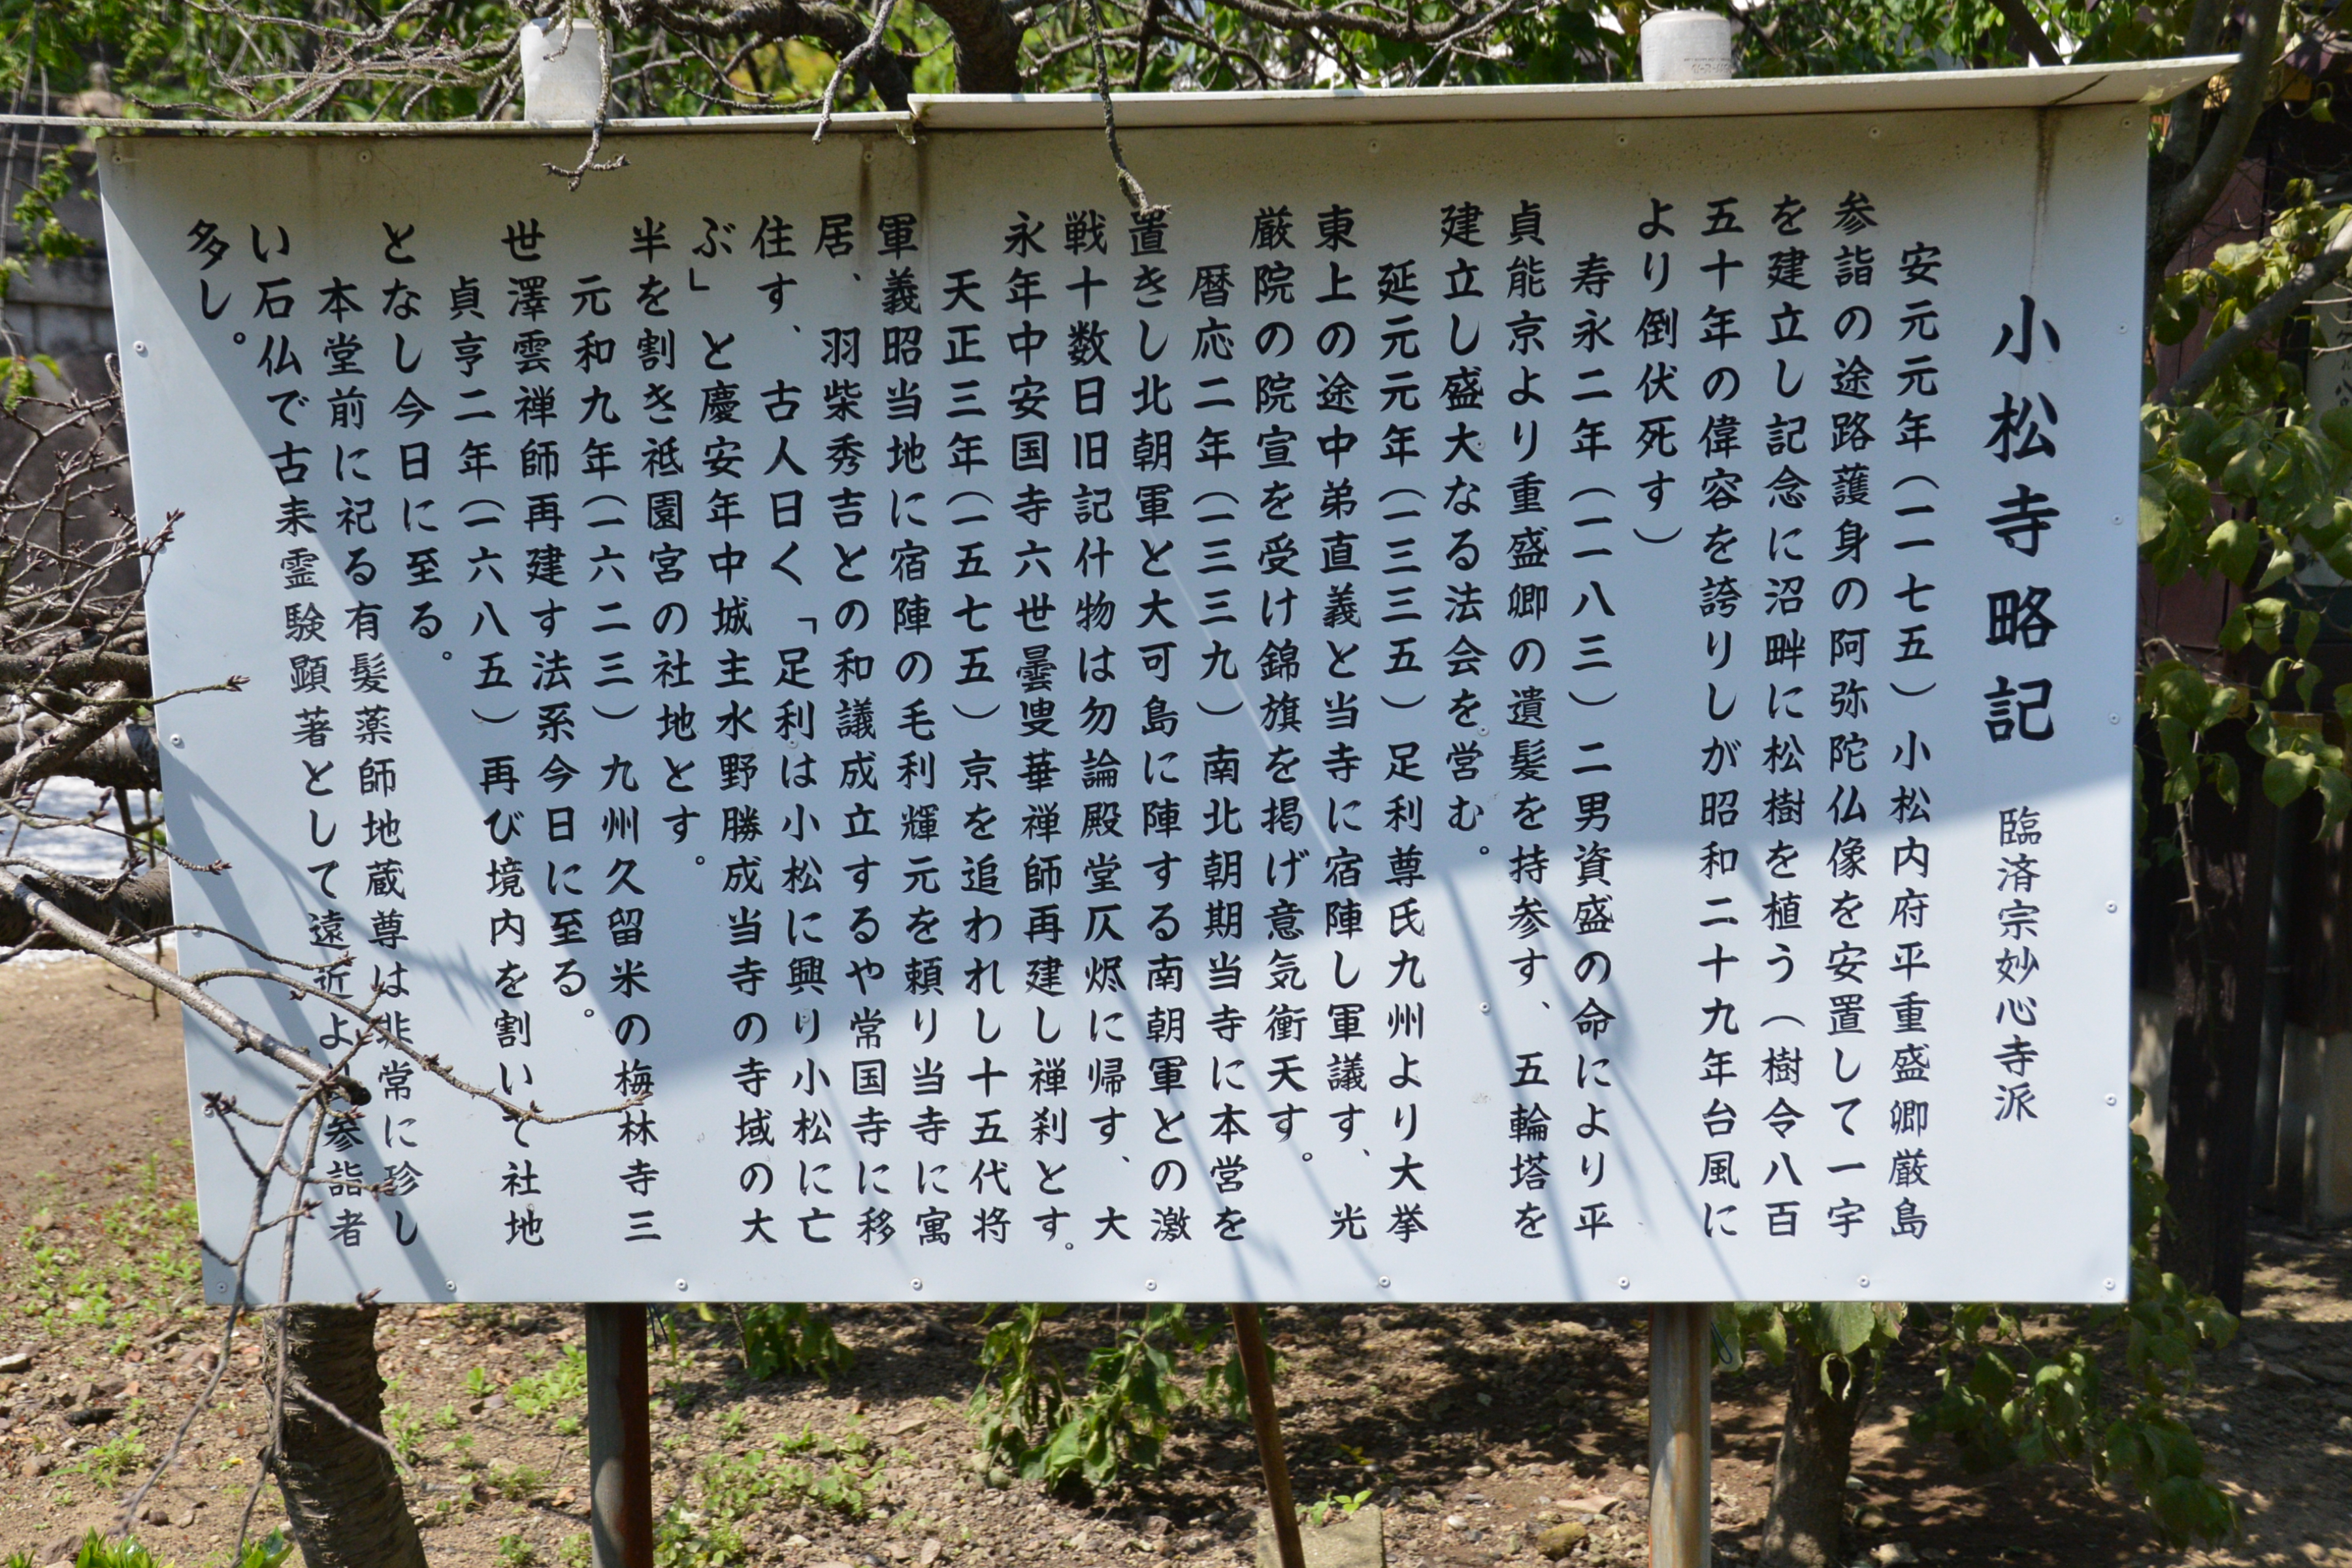 小松寺略記 臨済宗妙心寺派
安元元年（一一七五）小松内府平重盛卿厳島
参詣の途路護身の阿弥陀仏像を安置して一宇
を建立し記念に沼畔に松樹を植う（樹令八百
五十年の偉容を誇りしが昭和二十九年台風に
より倒伏死す）
寿永二年（一一八三）二男資盛の命により平
貞能京より重盛卿の遺髪を持参す、五輪塔を
建立し盛大なる法会を営む。
延元元年（一三三五）足利尊氏九州より大挙
東上の途中弟直義と当寺に宿陣し軍議す、光
厳院の院宣を受け錦旗を掲げ意気衝天す。
暦応二年（一三三九）南北朝期当寺に本営を
置きし北朝軍と大可島に陣する南朝軍との激
戦十数日旧記什物は勿論殿堂仄烬に帰す、大
永年中安国寺六世曇叟華禅師再建し禅刹とす。
天正三年（一五七五）京を追われし十五代将
軍義昭当地に宿陣の毛利輝元を頼り当寺に寓
居、羽柴秀吉との和議成立するや常国寺に移
住す、古人曰く「足利は小松に興り小松に亡
ぶ」と慶安年中城主水野勝成当寺の寺域の大
半を割き祗園宮の社地とす。
元和九年（一六二三）九州久留米の梅林寺三
世澤雲禅師再建す法系今日に至る。
貞亨二年（一六八五）再び境内を割いて社地
となし今日に至る。
本堂前に祀る有髪薬師地蔵尊は非常に珍し
い石仏で古来霊験顕著として遠近より参詣者
多し。